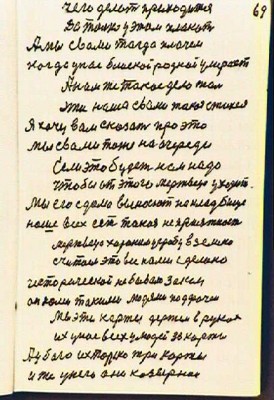 69
чего делот приходится
Да тоже у этом плакат
А мы свами тагда плачем
когда унас близкой родной умирает
А ним же такое дело
эти наша свами такая
Я хочу вам сказать про это
мы свами тоже на очереди
Если это будет нем надо
чтобы от этого мертвого уходит
Мы его сдомо выносют на кладбище
наше всех сет такая неприятност
мертвого хоронют угробу в землю
считом это все нами сделано
исторической небывало Закон
он нами такими людями подточен
Мы эти карты держем в руках
их унас всех людей за карты
А у бога их только три карты
и те унего они козырные